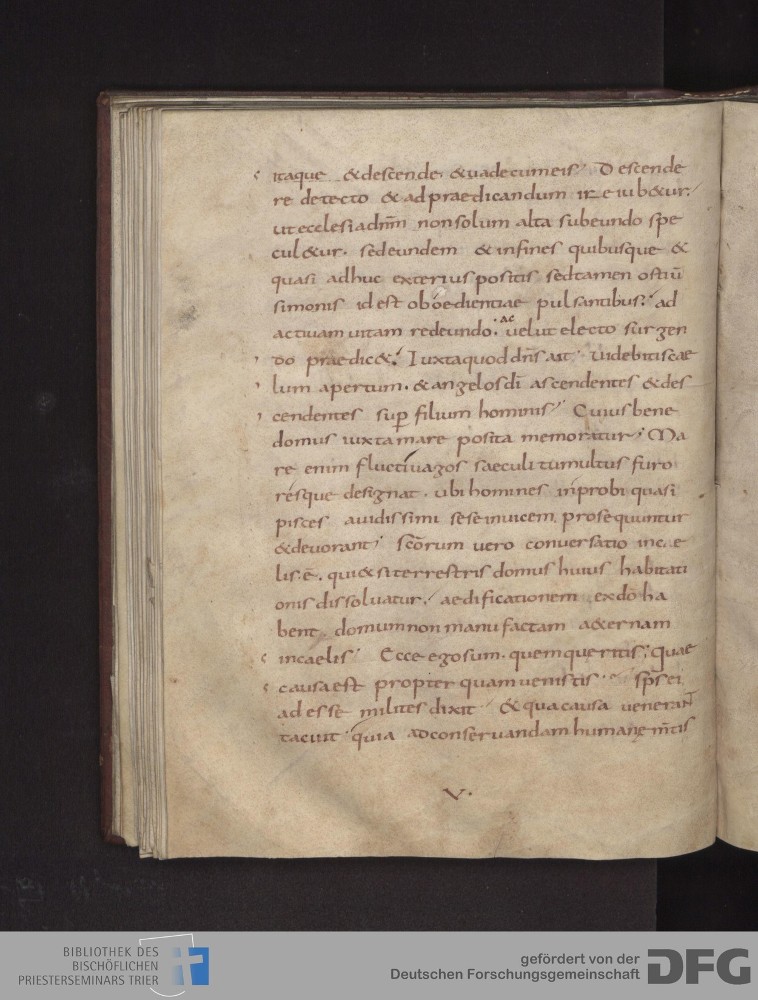 itaque & descende. & uade cum eis; Descende
re de tecto & ad praedicandum ire iub&ur.
ut ecclesi ad nrm non solum alta subeundo spe
cul&ur. sed eundem & in fines quibusque &
quasi adhuc exterius positis sed tamen ostiū
simonis id est oboedientiae pulsantibus; ad
actiuam uitam redeundo. ac uelut e lecto surgen
do praedic&; Iuxta quod dns ait; Uidebitis cae
lum apertum. & angelos di ascendentes & des
cendentes sup filium hominis; Cuius bene
domus iuxta mare posita memoratur; Ma
re enim fluctiuagos saeculi tumultus furo
resque designat. ubi homines inprobi quasi
pisces auidissimi sese inuicem prosequuntur
& deuorant; scorum uero conuersatio in cae
lis ē. qui & si terrestris domus huius habitati
onis dissoluatur. aedificationem ex dō ha
bent. domum non manu factam a&ernam
in caelis; Ecce ego sum. quem queritis; quae
causa est propter quam uenistis; sps ei
adesse milites dixit; & qua causa uenerant
tacuit; quia ad conseruandam humanę mtis
V.
BIBLIOTHEK DES
BISCHÖFLICHEN
PRIESTERSEMINARS TRIER
gefördert von der
Deutschen Forschungsgemeinschaft
DFG